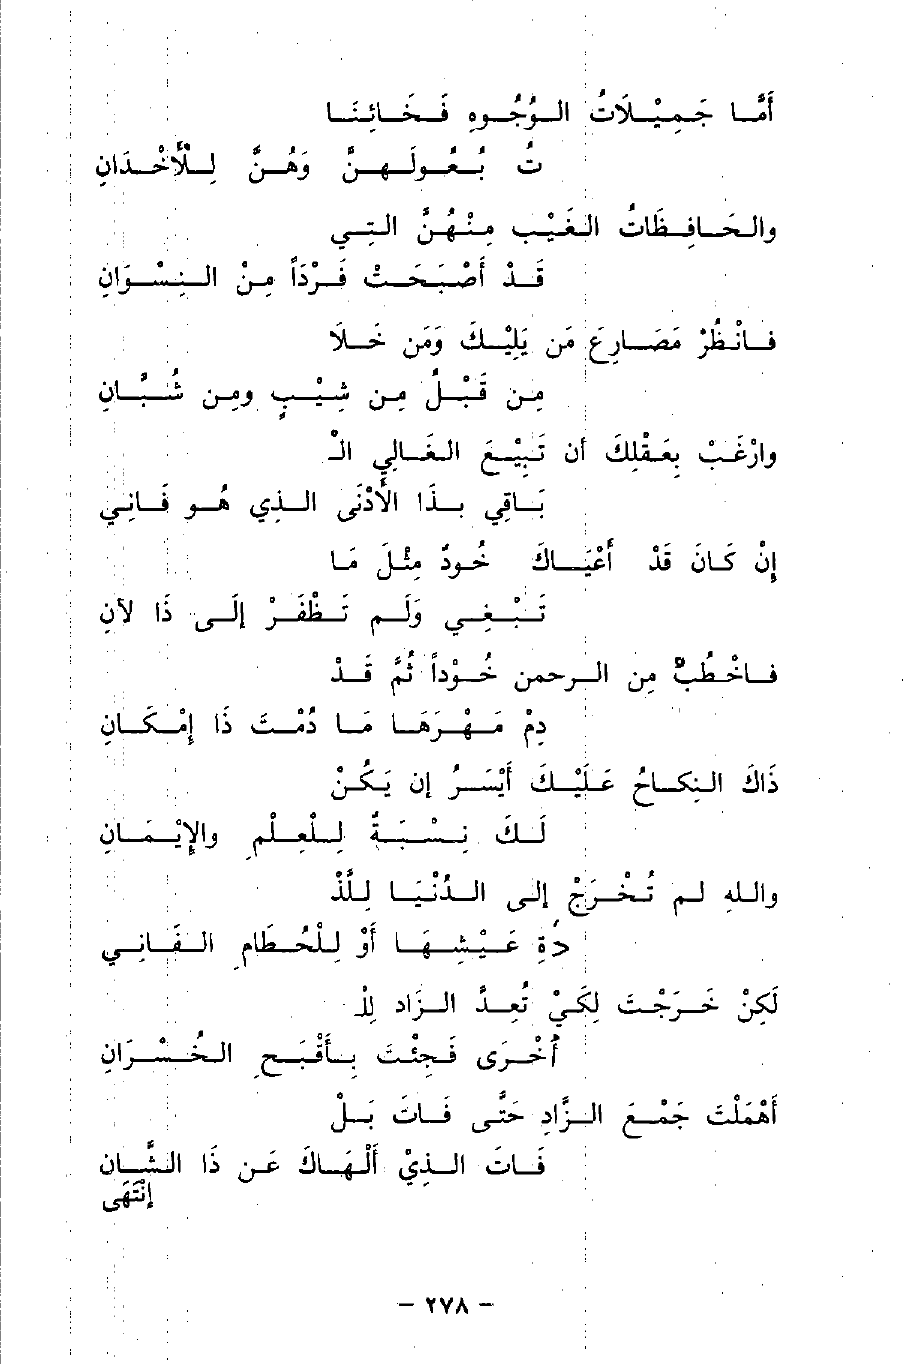 أَمَّا جَمِيْلَاتُ الوُجُوهِ فَخَائِنَا
تُ بُعُولَهِنَّ وَهُنَّ لِلْأَخْدَانِ
والحَافِظَاتُ الغَيْبِ مِنْهُنَّ التِي
قَدْ أَصْبَحَتْ فَرْدَاً مِنْ النِسْوَانِ
فانْظُرْ مَصَارِعَ مَن يَلِيْكَ وَمَن خَلَا
مِن قَبْلُ مِن شِيْبٍ ومِن شُبَّانِ
وارْغَبْ بِعَقْلِكَ أن تَبِيْعَ الغَالِي الْـ
بَاقِي بِذَا الأَدْنَى الذِي هُو فَانِي
إِنْ كَانَ قَدْ أَعْيَاكَ خُودٌ مِثْلَ مَا
تَبْغِي وَلَم تَظْفَرْ إلَى ذَا لآنِ
فاخْطُبْ مِن الرحمنِ خُوْداً ثُمَّ قَدْ
دِمْ مَهْرَهَا مَا دُمْتَ ذَا إِمْكَانِ
ذَاكَ النِكاحُ عَلَيْكَ أَيْسَرُ إن يَكُنْ
لَكَ نِسْبَةٌ لِلْعِلْمِ والإِيْمَانِ
والله لم تُخْرَجْ إلى الدُنْيَا لِلَّذْ
دَةِ عَيْشِهَا أَوْ لِلْحُطَامِ الفَانِي
لَكِنْ خَرَجْتَ لِكَيْ تُعِدَّ الزَاد لِلْـ
أُخْرَى فَجِئْتَ بِأَقْبَحِ الخُسْرَانِ
أَهْمَلْتَ جَمْعَ الزَّادِ حَتَّى فَاتَ بَلْ
فَاتَ الذِيْ أَلْهَاكَ عَن ذَا الشَّانِ
إنْتَهَى
– ٢٧٨ –